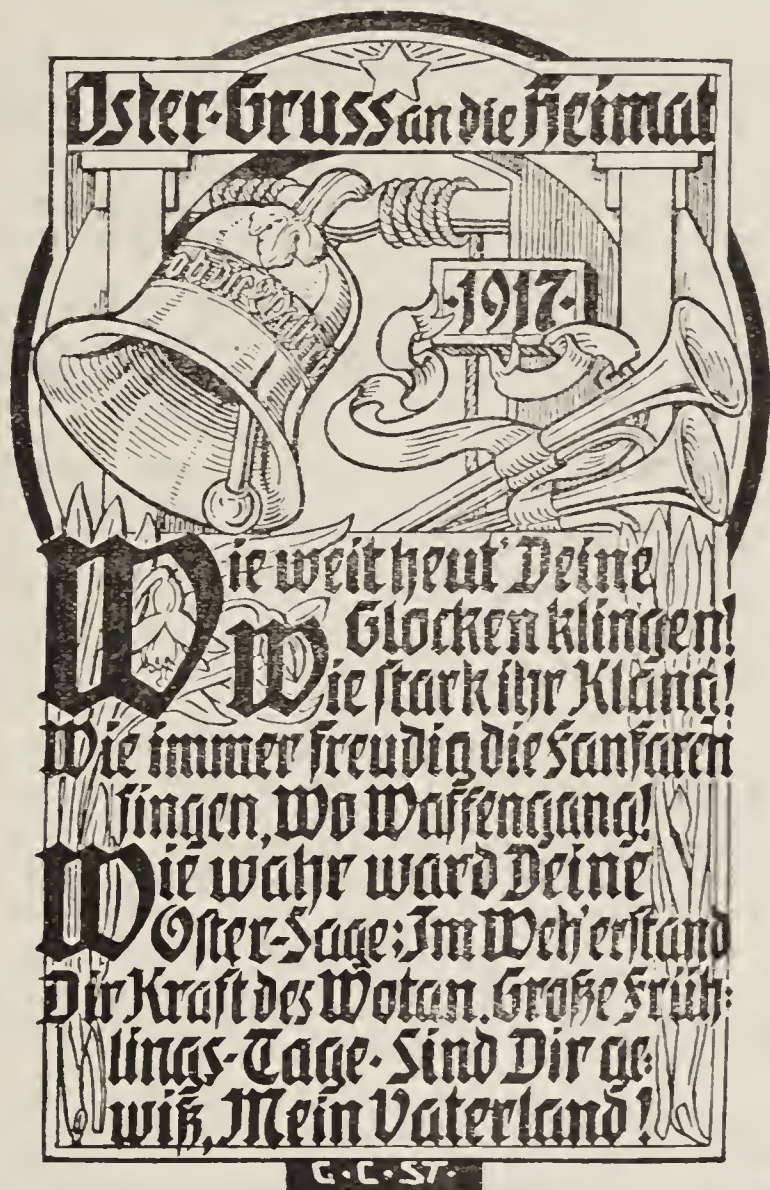 Oster-Gruss an die Heimat
·1917·
Wie weit heut' Deine
Glocken klingen!
Wie stark ihr Klang!
Wie immer freudig die Fanfaren
singen, Wo Waffengang!
Wie wahr ward Deine
Oster-Sage; Im Weh' erstand
Dir Kraft des Wotan. Große Früh-
lings-Tage · Sind Dir ge-
wiß, Mein Vaterland!
G·C·ST·